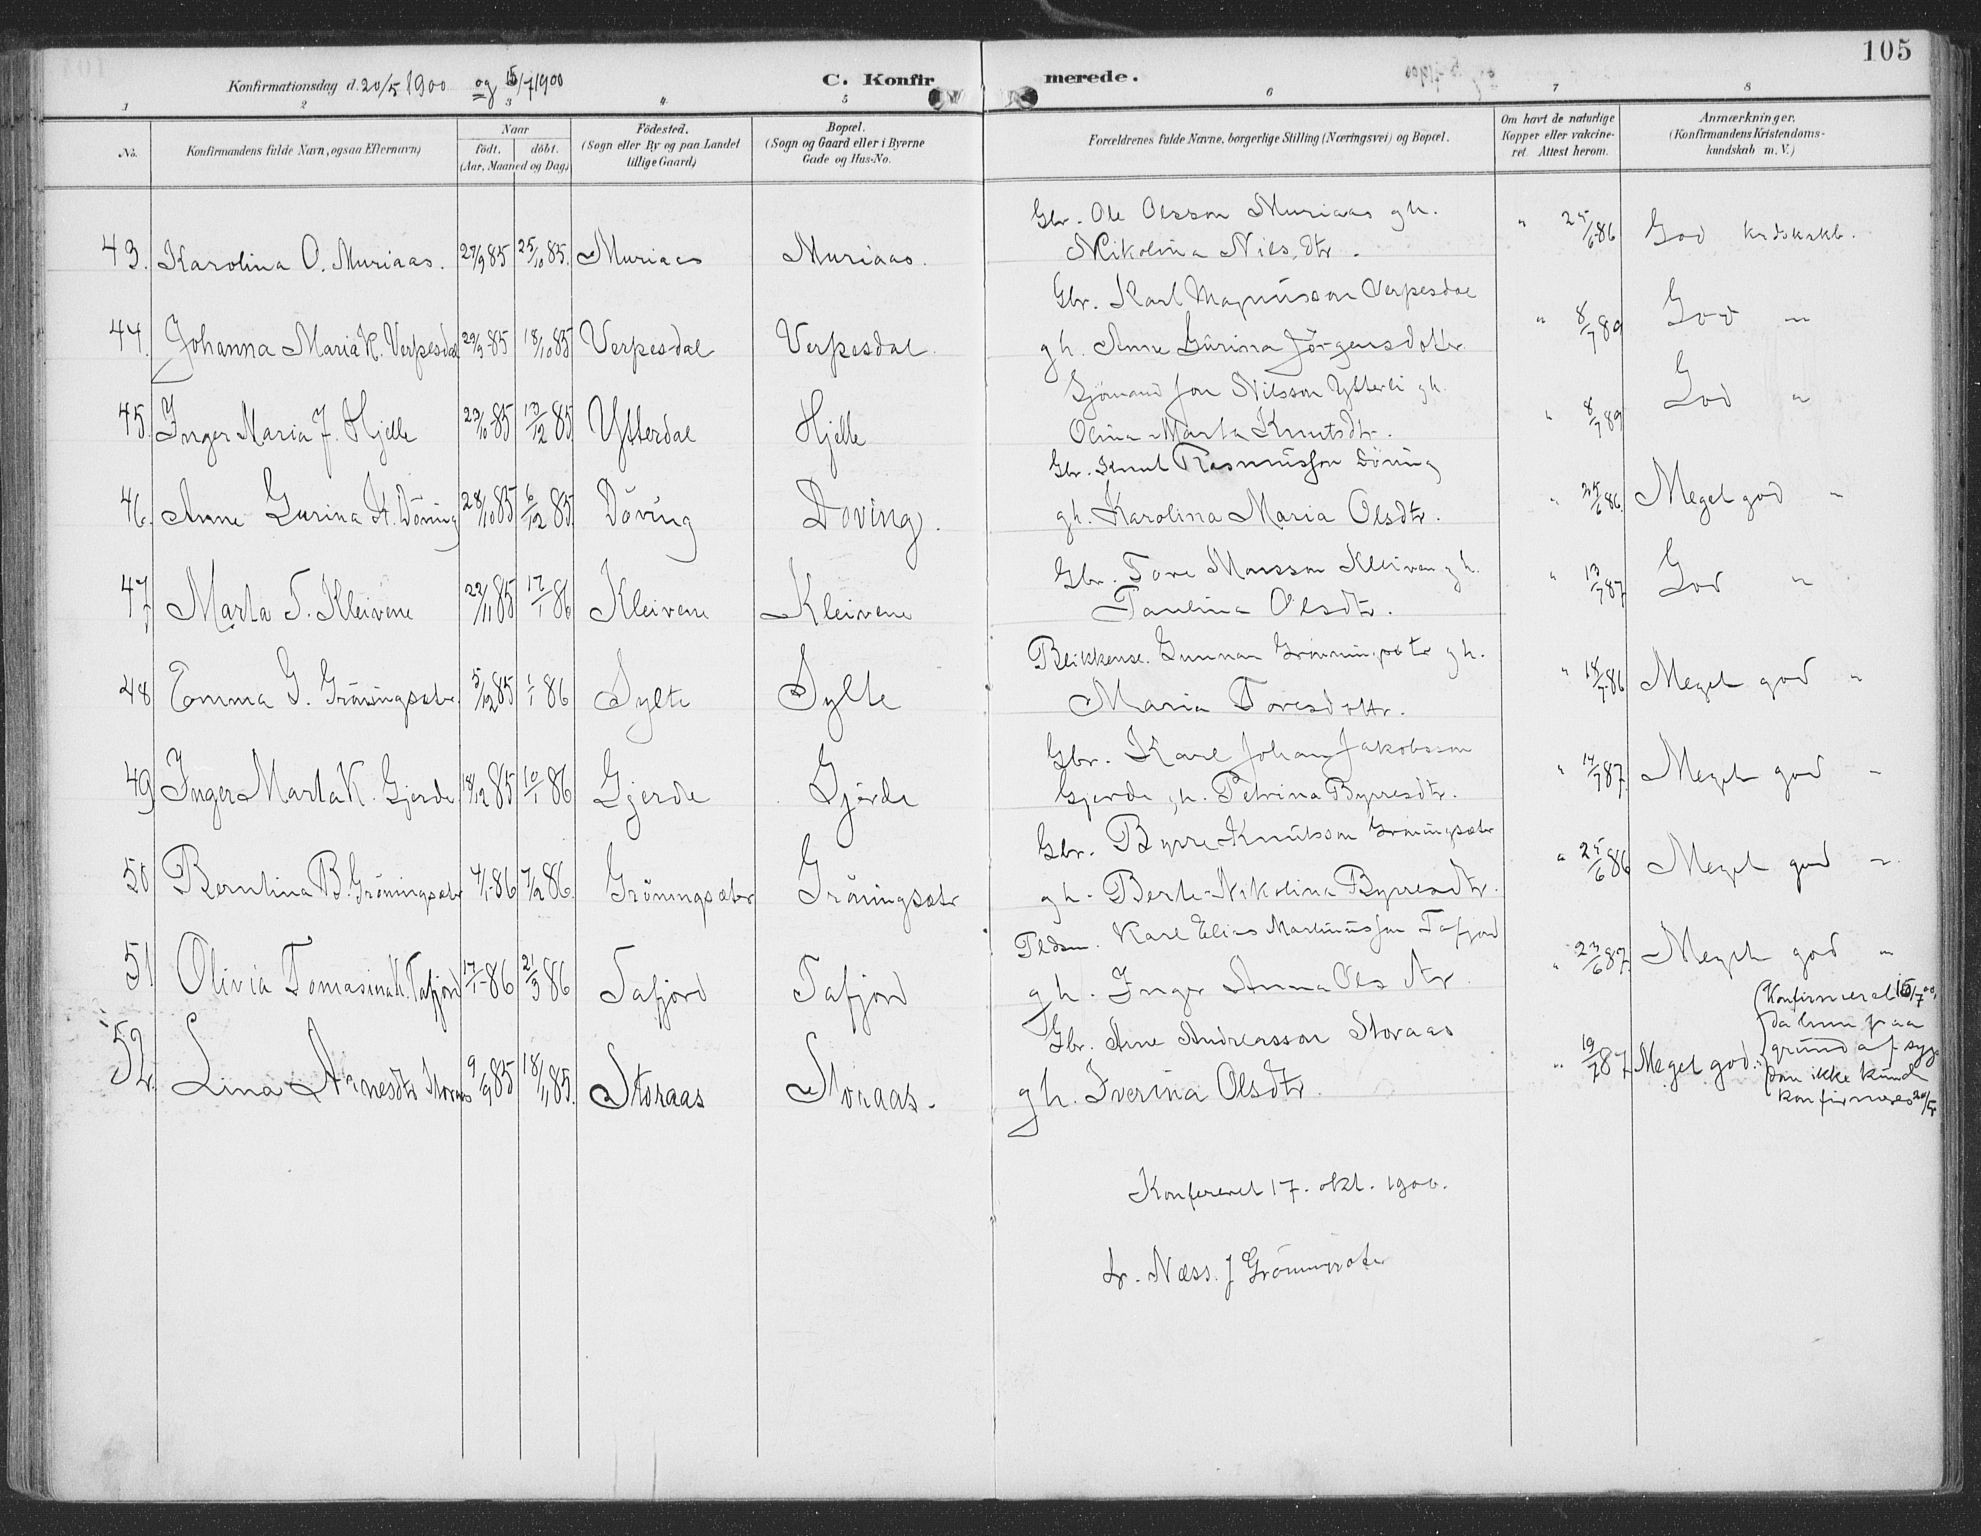 105
Konfirmationsdag d. 20/5 1900 og 15/7 1900
C. Konfirmerede.
1 2 3 4 5 6 7 8
No. Konfirmandens fulde Navn, ogsaa Efternavn) Naar födt. döbt. (Aar, Maaned og Dag) Födested. (Sogn eller By og paa Landet tillige Gaard) Bopæl. (Sogn og Gaard eller i Byerne Gade og Hus-No. Forældrenes fulde Navne, borgerlige Stilling (Næringsvei) og Bopæl. Om havt de naturlige Kopper eller vakcineret. Attest herom. Anmærkninger. (Konfirmandens Kristendomskundskab m. V.)
Gbr. Ole Olsson Muriaas gh.
43. Karolina O. Muriaas. 27/9 85 25/10 85. Muriaas Muriaas. Nikolina Nils dtr. " 25/6 86 God krdskskb.
Gbr. Karl Magnusson Verpesdal
44. Johanna Maria K. Verpesdal 29/9 85 18/10 85 Verpesdal Verpesdal. gh. Anne Gurina Jörgensdotter " 8/7 89 God "
Sjömand Jon Nilsson Ytterli gh.
45. Inger Maria J. Hjelle 23/10 85 13/12 85 Ytterdal Hjelle Olina Marta Knutsdtr. " 8/7 89 God "
Gbr. Knut Rasmusson Döving
46. Anne Gurina K. Döving 28/10 85 6/12 85 Döving Doving. gh. Karolina Maria Olsdtr. " 25/6 86. Meget god "
Gbr. Tore Monsson Kleiven gh.
47. Marta T. Kleivene 22/11 85 17/1 86 Kleivene Kleivene Paulina Olsdtr. " 13/7 87. God "
Blikkensl. Gunnar Gröningsætr gh.
48 Emma G. Gröningsætr. 5/12 85 1/1 86 Sylte Sylte Maria Toresdottr. " 18/7 86 Meget god "
Gbr. Karl Johan Jakobsson
49 Inger Marta K. Gjerde 18/12 85 10/1 86 Gjerde Gjerde Gjerde gh. Petrina Byrresdtr. " 14/7 87. Meget god "
Gbr. Byrre Knutsson Gröningsætr
50 Berntina B. Gröningsætr 4/1 86 7/2 86. Gröningsætr Gröningsætr gh. Berte-Nikolina Byrresdtr. " 25/6 86 Meget god "
Pldsm. Karl Elias Martinusson Tafjord
51 Olivia Tomasina K. Tafjord 17/1 86 21/3 86 Tafjord Tafjord gh. Inger Anna Ols dtr. " 23/6 87. Meget god "
Gbr. Arne Andreasson Storaas
52. Lina Arnesdtr Storaas 9/9 85 18/11 85. Storaas Storaas. gh. Iverina Olsdtr. " 19/7 87 Meget god.
Konfirmeret 15/7 00,
da hun paa
grund af syg-
dom ikke kunde
konfirmeres 20/5
Konfereret 17. okt. 1900.
Næss. J Gröningsæter